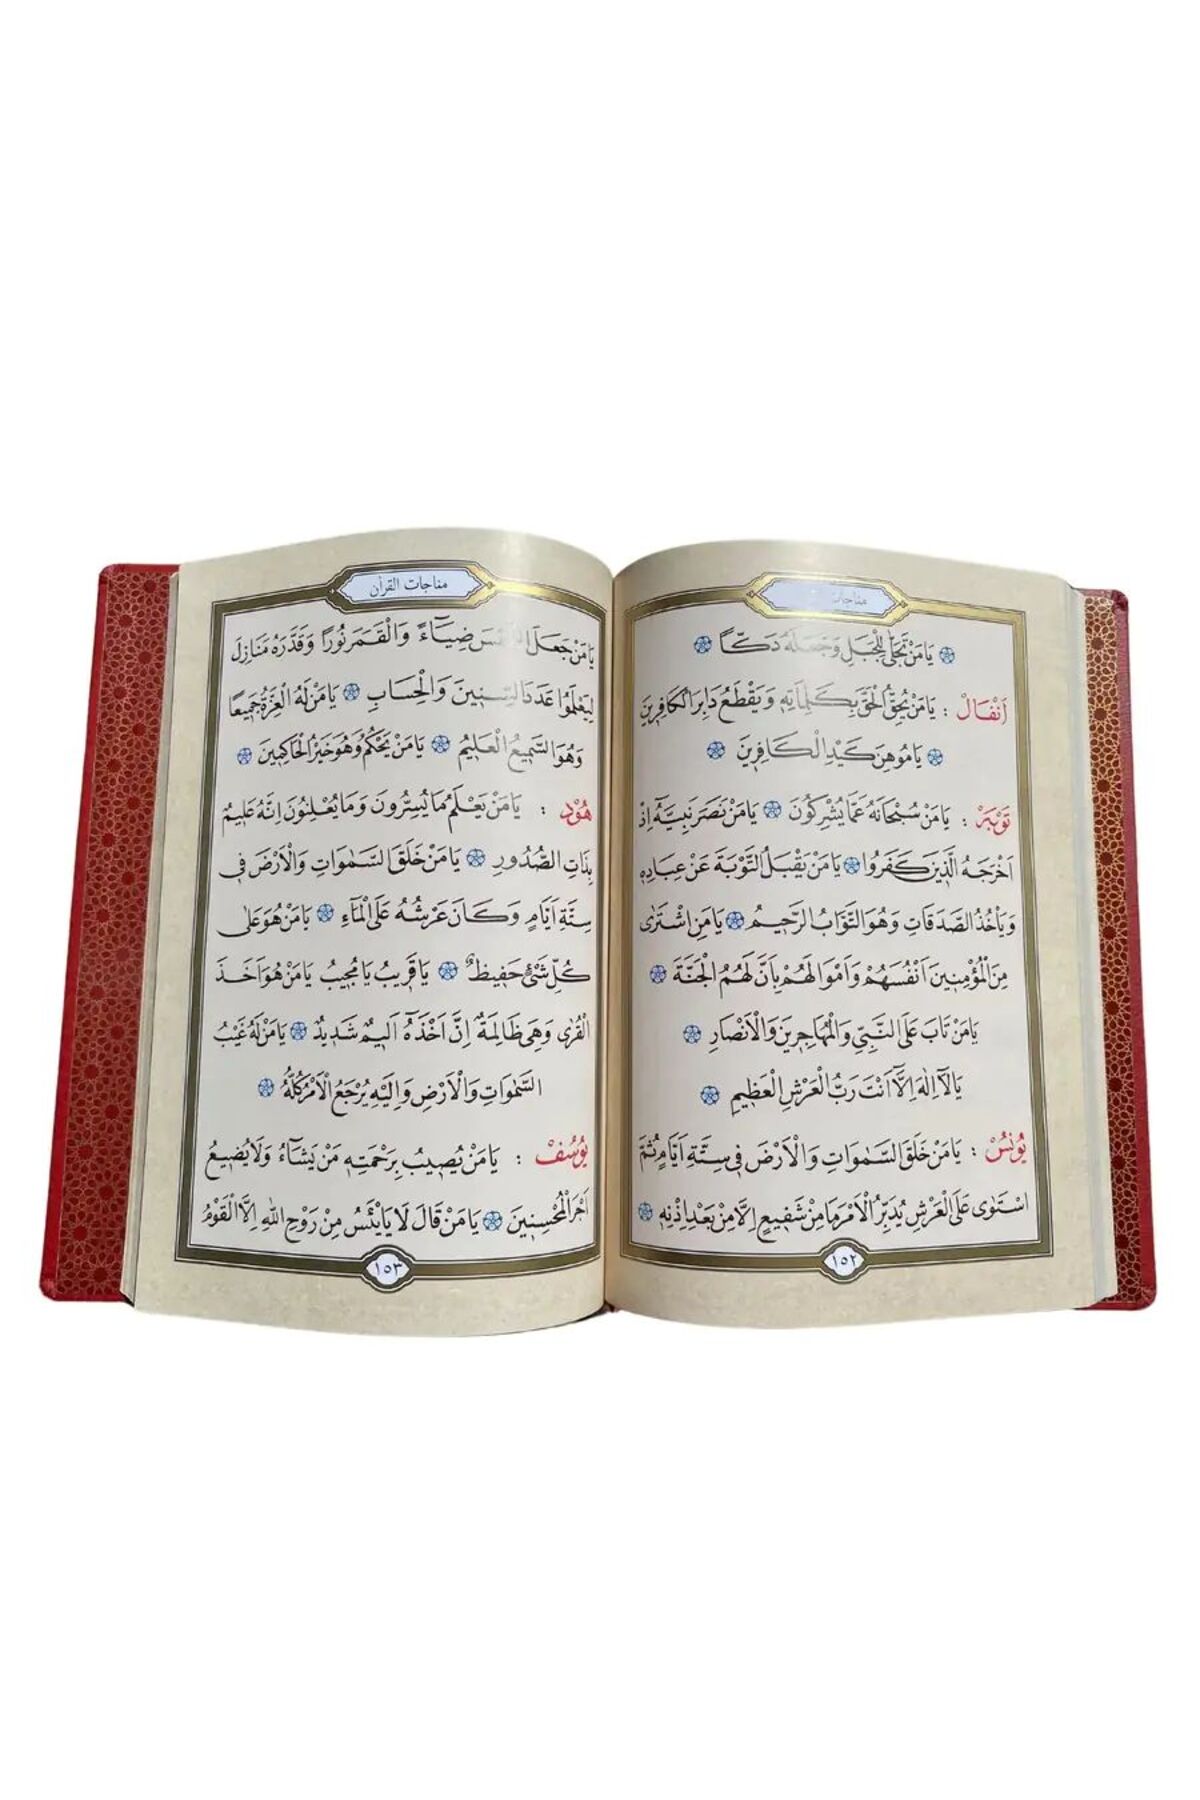 مناجات
يَا مَنْ تَجَلّٰى لِلْجَبَلِ وَجَعَلَهُ دَكًّا
اَنْفَالْ : يَا مَنْ يُحِقُّ الْحَقَّ بِكَلِمَاتِهٖ وَيَقْطَعُ دَابِرَ الْكَافِرٖينَ
يَا مُوهِنَ كَيْدِ الْكَافِرٖينَ
تَوْبَهْ : يَا مَنْ سُبْحَانَهُ عَمَّا يُشْرِكُونَ يَا مَنْ نَصَرَ نَبِيَّهُٓ اِذْ
اَخْرَجَهُ الَّذٖينَ كَفَرُوا يَا مَنْ يَقْبَلُ التَّوْبَةَ عَنْ عِبَادِهٖ
وَيَأْخُذُ الصَّدَقَاتِ وَهُوَ التَّوَّابُ الرَّحٖيمُ يَا مَنِ اشْتَرٰى
مِنَ الْمُؤْمِنٖينَ اَنْفُسَهُمْ وَاَمْوَالَهُمْ بِاَنَّ لَهُمُ الْجَنَّةَ
يَا مَنْ تَابَ عَلَى النَّبِيِّ وَالْمُهَاجِرٖينَ وَالْاَنْصَارِ
يَا لَٓا اِلٰهَ اِلَّٓا اَنْتَ رَبُّ الْعَرْشِ الْعَظٖيمِ
يُونُسْ : يَا مَنْ خَلَقَ السَّمٰوَاتِ وَالْاَرْضَ فٖى سِتَّةِ اَيَّامٍ ثُمَّ
اسْتَوٰى عَلَى الْعَرْشِ يُدَبِّرُ الْاَمْرَ مَا مِنْ شَفٖيعٍ اِلَّا مِنْ بَعْدِ اِذْنِهٖ
١٥٢
مناجات القرأن
يَا مَنْ جَعَلَ الشَّمْسَ ضِيَٓاءً وَالْقَمَرَ نُورًا وَقَدَّرَهُ مَنَازِلَ
لِيَعْلَمُوا عَدَدَ السِّنٖينَ وَالْحِسَابِ يَا مَنْ لَهُ الْعِزَّةُ جَمٖيعًا
وَهُوَ السَّمٖيعُ الْعَلٖيمُ يَا مَنْ يَحْكُمُ وَهُوَ خَيْرُ الْحَاكِمٖينَ
هُوْدْ : يَا مَنْ يَعْلَمُ مَا يُسِرُّونَ وَمَا يُعْلِنُونَ اِنَّهُ عَلٖيمٌ
بِذَاتِ الصُّدُورِ يَا مَنْ خَلَقَ السَّمٰوَاتِ وَالْاَرْضَ فٖى
سِتَّةِ اَيَّامٍ وَكَانَ عَرْشُهُ عَلَى الْمَٓاءِ يَا مَنْ هُوَ عَلٰى
كُلِّ شَىْءٍ حَفٖيظٌ يَا قَرٖيبُ يَا مُجٖيبُ يَا مَنْ هُوَ اَخَذَ
الْقُرٰى وَهِىَ ظَالِمَةٌ اِنَّ اَخْذَهُٓ اَلٖيمٌ شَدٖيدٌ يَا مَنْ لَهُ غَيْبُ
السَّمٰوَاتِ وَالْاَرْضِ وَاِلَيْهِ يُرْجَعُ الْاَمْرُ كُلُّهُ
يُوسُفْ : يَا مَنْ يُصٖيبُ بِرَحْمَتِهٖ مَنْ يَشَٓاءُ وَلَا يُضٖيعُ
اَجْرَ الْمُحْسِنٖينَ يَا مَنْ قَالَ لَا يَايْئَسُ مِنْ رَوْحِ اللّٰهِ اِلَّا الْقَوْمُ
١٥٣